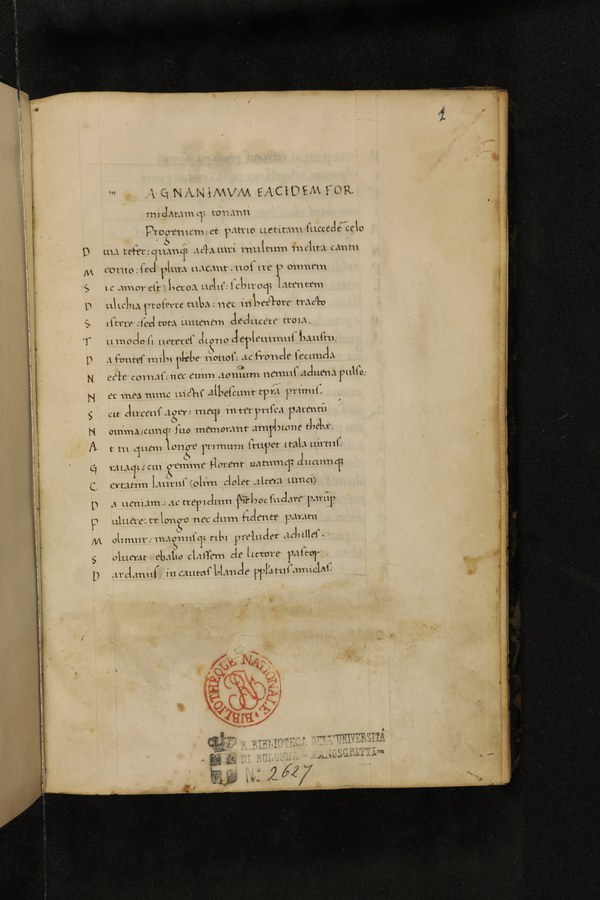 1
m AGNANIMVM EACIDEM FOR
midatamq; tonanti
Progeniem: et patrio uetitam succedē cęlo
D iua refer: quanq̃ acta uiri multum inclita cantu
M eonio: sed plura uacant. nos ire p omnem
S ic amor est) heroa uelis: schiroq; latentem
D ulichia proferre tuba: nec in hectore tracto
S istere: sed tota iuuenem deducere troia.
T u modo si ueteres digno depleuimus haustu:
D a fontes mihi phebe nouos: ac fronde secunda
N ecte comas: nec enim aonium nemus aduena pulso:
N ec mea nunc uictis albescunt tp̃ra primis.
S cit dirceus ager: meq; inter prisca parentū
N omina: cunq; suo memorant amphione thebę.
A t tu quem longe primum stupet itala uirtus
G raiaq;: cui gemine florent uatumq; ducumq;
C ertatim laurus (olim dolet altera uinci)
D a ueniam: ac trepidum hoc sudare parūp
P uluere: te longo nec dum fidente paratu
M olimur: magnusq; tibi preludet achilles.
S oluerat ebalio classem de littore pastor
D ardanus: incautas blande populatus amiclas.
BIBLIOTHÈQUE NATIONALE
BN
R. BIBLIOTECA DELL'UNIVERSITÀ
DI BOLOGNA - MANOSCRITTI
N: 2627